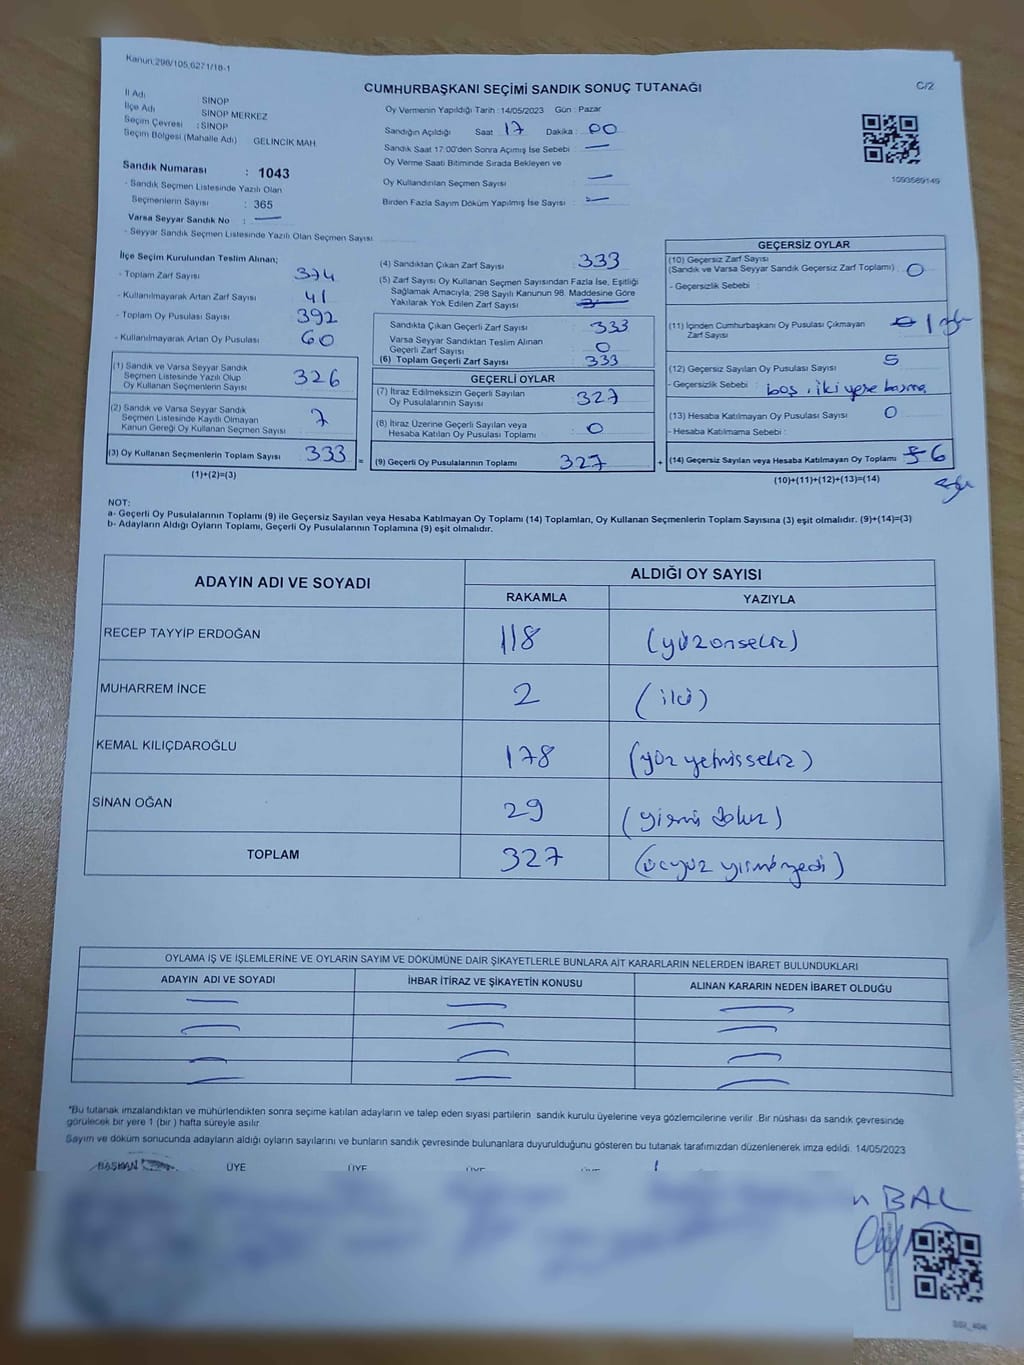 Kanun:298/105,6271/18-1
C/2
CUMHURBAŞKANI SEÇİMİ SANDIK SONUÇ TUTANAĞI
İl Adı : SİNOP
İlçe Adı : SİNOP MERKEZ
Seçim Çevresi : SİNOP
Seçim Bölgesi (Mahalle Adı) GELİNCİK MAH.
Sandık Numarası : 1043
- Sandık Seçmen Listesinde Yazılı Olan
Seçmenlerin Sayısı : 365
Varsa Seyyar Sandık No : —
- Seyyar Sandık Seçmen Listesinde Yazılı Olan Seçmen Sayısı
Oy Vermenin Yapıldığı Tarih : 14/05/2023 Gün : Pazar
Sandığın Açıldığı Saat : 17 Dakika : 00
Sandık Saat 17:00'den Sonra Açımış İse Sebebi : —
Oy Verme Saati Bitiminde Sırada Bekleyen ve
Oy Kullandırılan Seçmen Sayısı : —
Birden Fazla Sayım Döküm Yapılmış İse Sayısı : —
1093589149
İlçe Seçim Kurulundan Teslim Alınan;
- Toplam Zarf Sayısı : 374
- Kullanılmayarak Artan Zarf Sayısı : 41
- Toplam Oy Pusulası Sayısı : 392
- Kullanılmayarak Artan Oy Pusulası : 60
(1) Sandık ve Varsa Seyyar Sandık
Seçmen Listesinde Yazılı Olup
Oy Kullanan Seçmenlerin Sayısı : 326
(2) Sandık ve Varsa Seyyar Sandık
Seçmen Listesinde Kayıtlı Olmayan
Kanun Gereği Oy Kullanan Seçmen Sayısı : 7
(3) Oy Kullanan Seçmenlerin Toplam Sayısı : 333 =
(1)+(2)=(3)
(4) Sandıktan Çıkan Zarf Sayısı : 333
(5) Zarf Sayısı Oy Kullanan Seçmen Sayısından Fazla İse, Eşitliği
Sağlamak Amacıyla, 298 Sayılı Kanunun 98. Maddesine Göre
Yakılarak Yok Edilen Zarf Sayısı
Sandıkta Çıkan Geçerli Zarf Sayısı : 333
Varsa Seyyar Sandıktan Teslim Alınan
Geçerli Zarf Sayısı : 0
(6) Toplam Geçerli Zarf Sayısı : 333
GEÇERLİ OYLAR
(7) İtiraz Edilmeksizin Geçerli Sayılan
Oy Pusulalarının Sayısı : 327
(8) İtiraz Üzerine Geçerli Sayılan veya
Hesaba Katılan Oy Pusulası Toplamı : 0
(9) Geçerli Oy Pusulalarının Toplamı : 327 +
GEÇERSİZ OYLAR
(10) Geçersiz Zarf Sayısı
(Sandık ve Varsa Seyyar Sandık Geçersiz Zarf Toplamı) : 0
- Geçersizlik Sebebi :
(11) İçinden Cumhurbaşkanı Oy Pusulası Çıkmayan
Zarf Sayısı : 0 1
(12) Geçersiz Sayılan Oy Pusulası Sayısı : 5
- Geçersizlik Sebebi : boş, iki yere basma
(13) Hesaba Katılmayan Oy Pusulası Sayısı : 0
- Hesaba Katılmama Sebebi :
(14) Geçersiz Sayılan veya Hesaba Katılmayan Oy Toplamı : 5 6
(10)+(11)+(12)+(13)=(14)
NOT:
a- Geçerli Oy Pusulalarının Toplamı (9) ile Geçersiz Sayılan veya Hesaba Katılmayan Oy Toplamı (14) Toplamları, Oy Kullanan Seçmenlerin Toplam Sayısına (3) eşit olmalıdır. (9)+(14)=(3)
b- Adayların Aldığı Oyların Toplamı, Geçerli Oy Pusulalarının Toplamına (9) eşit olmalıdır.
ADAYIN ADI VE SOYADI ALDIĞI OY SAYISI
RAKAMLA YAZIYLA
RECEP TAYYİP ERDOĞAN 118 (yüzonsekiz)
MUHARREM İNCE 2 (iki)
KEMAL KILIÇDAROĞLU 178 (yüz yetmişsekiz)
SİNAN OĞAN 29 (yirmi dokuz)
TOPLAM 327 (üçyüz yirmiyedi)
OYLAMA İŞ VE İŞLEMLERİNE VE OYLARIN SAYIM VE DÖKÜMÜNE DAİR ŞİKAYETLERLE BUNLARA AİT KARARLARIN NELERDEN İBARET BULUNDUKLARI
ADAYIN ADI VE SOYADI İHBAR İTİRAZ VE ŞİKAYETİN KONUSU ALINAN KARARIN NEDEN İBARET OLDUĞU
*Bu tutanak imzalandıktan ve mühürlendikten sonra seçime katılan adayların ve talep eden siyasi partilerin sandık kurulu üyelerine veya gözlemcilerine verilir .Bir nüshası da sandık çevresinde
görülecek bir yere 1 (bir ) hafta süreyle asılır.
Sayım ve döküm sonucunda adayların aldığı oyların sayılarını ve bunların sandık çevresinde bulunanlara duyurulduğunu gösteren bu tutanak tarafımızdan düzenlenerek imza edildi. 14/05/2023
BAŞKAN ÜYE ÜYE ÜYE ÜYE
BAL